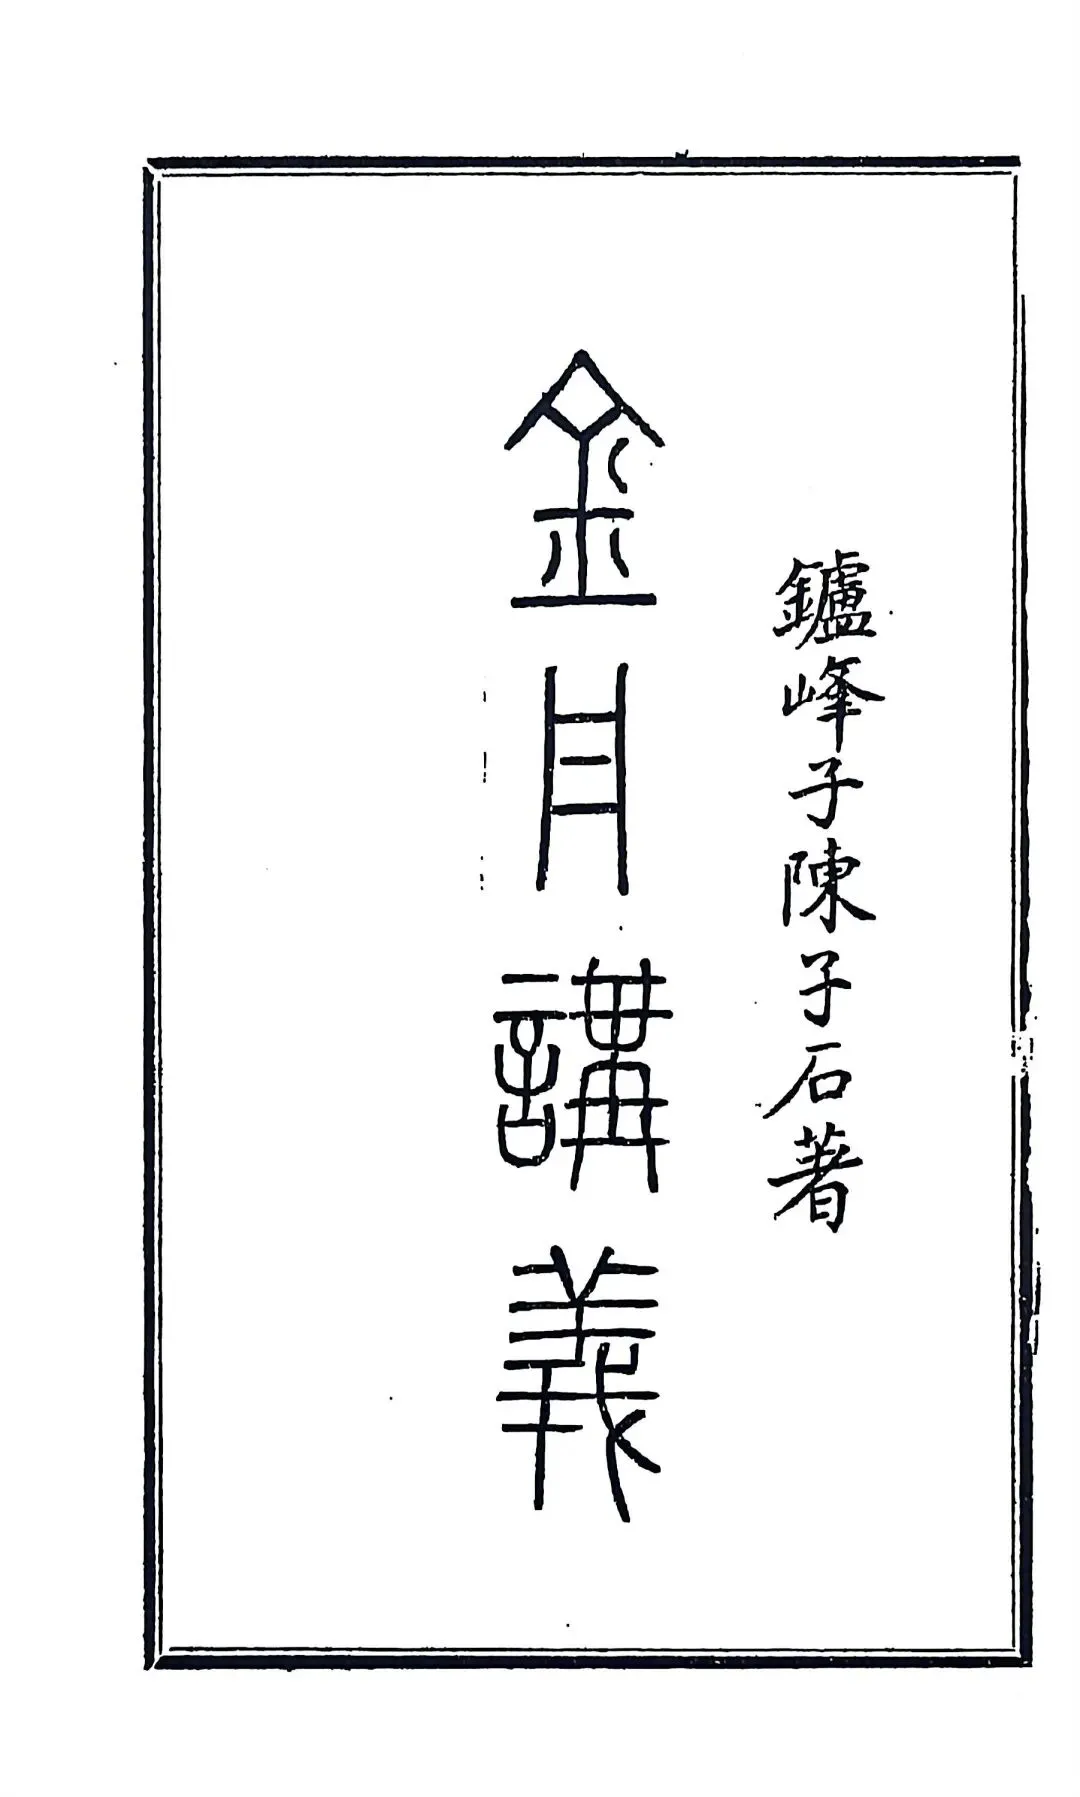 鑪峰子陳子石著
金丹講義